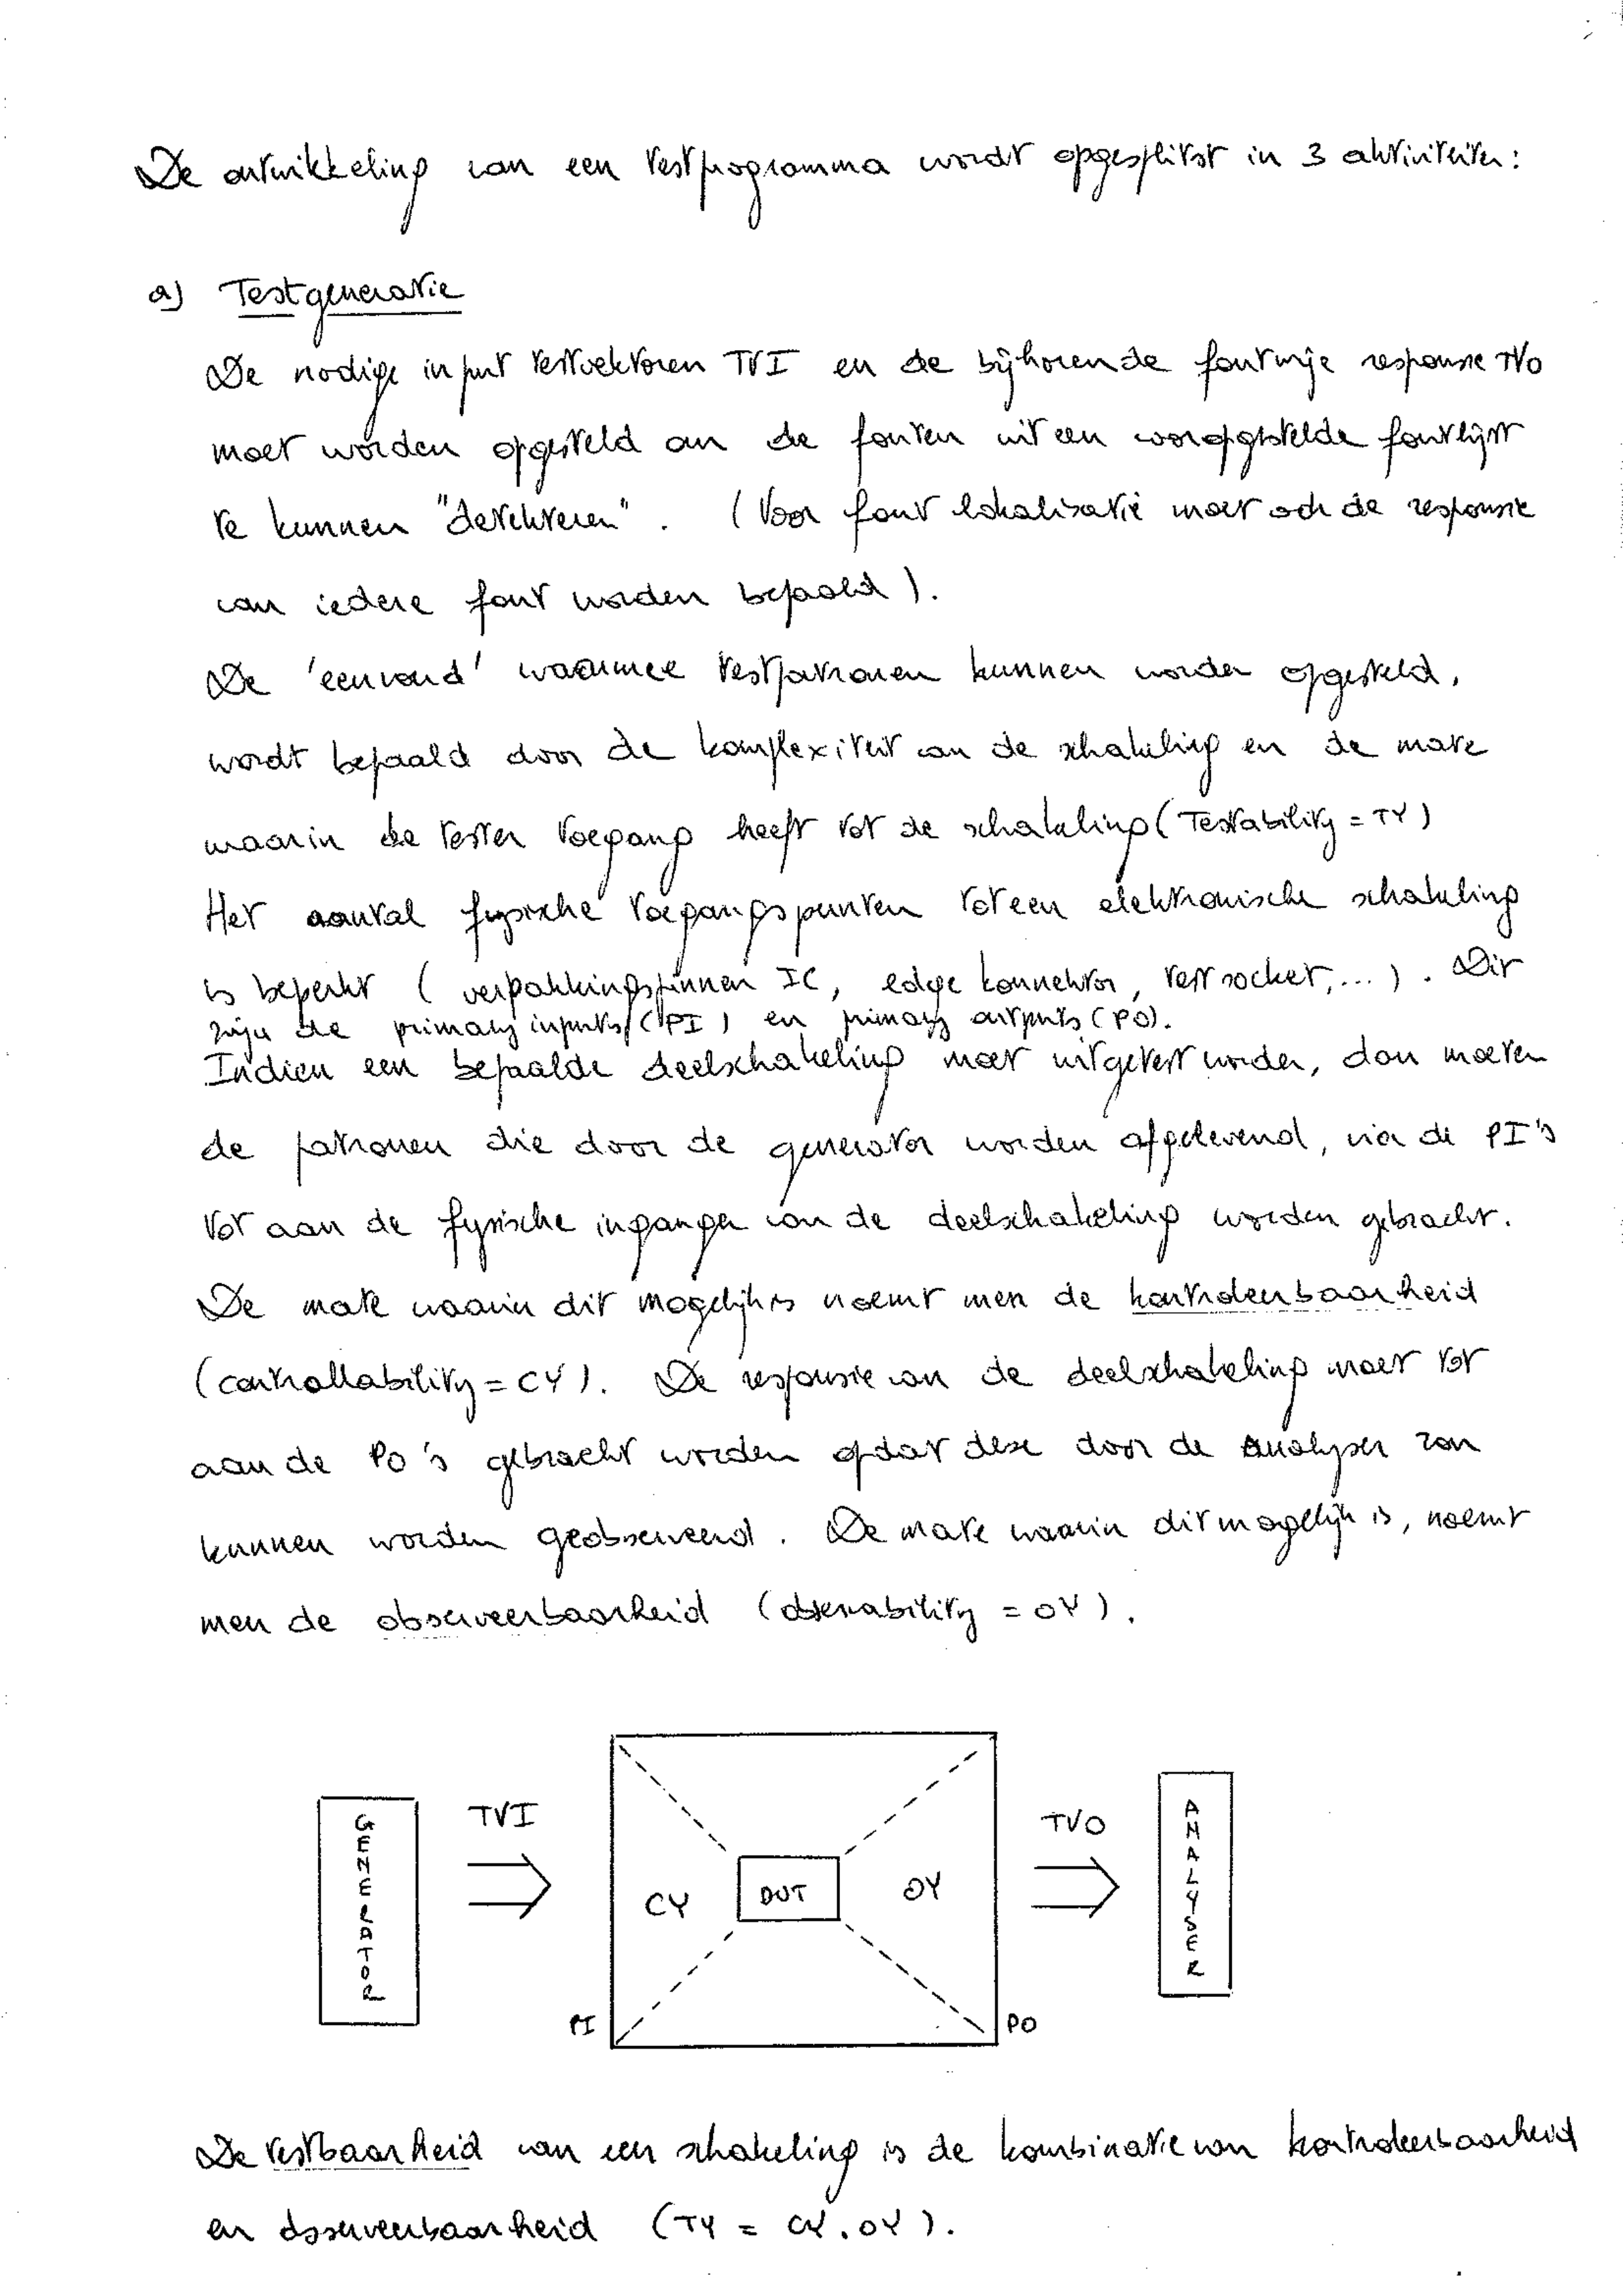 De ontwikkeling van een testprogramma wordt opgesplitst in 3 aktiviteiten:
a) Testgeneratie
De nodige input testvektoren TVI en de bijhorende foutvrije responsie TVO
moet worden opgesteld om de fouten uit een vooropgestelde foutlijst
te kunnen "detekteren". (Voor fout lokalisatie moet ook de responsie
van iedere fout worden bepaald).
De 'eenvoud' waarmee testpatronen kunnen worden opgesteld,
wordt bepaald door de komplexiteit van de schakeling en de mate
waarin de tester toegang heeft tot de schakeling (Testability = TY)
Het aantal fysische toegangspunten tot een elektronische schakeling
is beperkt (verpakkingspinnen IC, edge konnektor, test socket, ...). Dit
zijn de primary inputs (PI) en primary outputs (PO).
Indien een bepaalde deelschakeling moet uitgetest worden, dan moeten
de patronen die door de generator worden afgeleverd, via de PI's
tot aan de fysische ingangen van de deelschakeling worden gebracht.
De mate waarin dit mogelijk is noemt men de kontroleerbaarheid
(controllability = CY). De responsie van de deelschakeling moet tot
aan de PO's gebracht worden opdat deze door de analyser zou
kunnen worden geobserveerd. De mate waarin dit mogelijk is, noemt
men de observeerbaarheid (observability = OY).
GENERATOR
TVI
CY
DUT
OY
TVO
ANALYSER
PI
PO
De testbaarheid van een schakeling is de kombinatie van kontroleerbaarheid
en observeerbaarheid (TY = CY.OY).